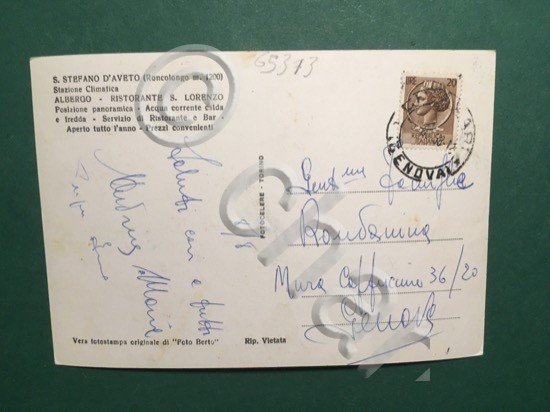 65313
S. STEFANO D'AVETO (Roncolongo m. 1200)
Stazione Climatica
ALBERGO - RISTORANTE S. LORENZO
Posizione panoramica - Acqua corrente calda
e fredda - Servizio di Ristorante e Bar
Aperto tutto l'anno - Prezzi convenienti
LIRE 20
GENOVA
8/8
Saluti cari a tutti
Maria
FOTOCELERE - TORINO
Famiglia
Mura Cappuccine 36/20
Genova
Vera fotostampa originale di "Foto Berto"
Rip. Vietata
©